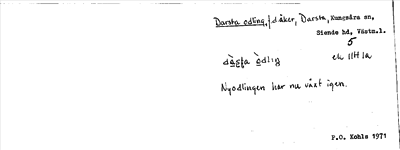 Darsta odling, f.d. åker, Darsta, Kungsåra sn,
Siende hd, Västm.l.
5
dàsṭa òdlıŋ ek 11H 1a
Nyodlingen har nu växt igen.
P.O. Kohls 1971